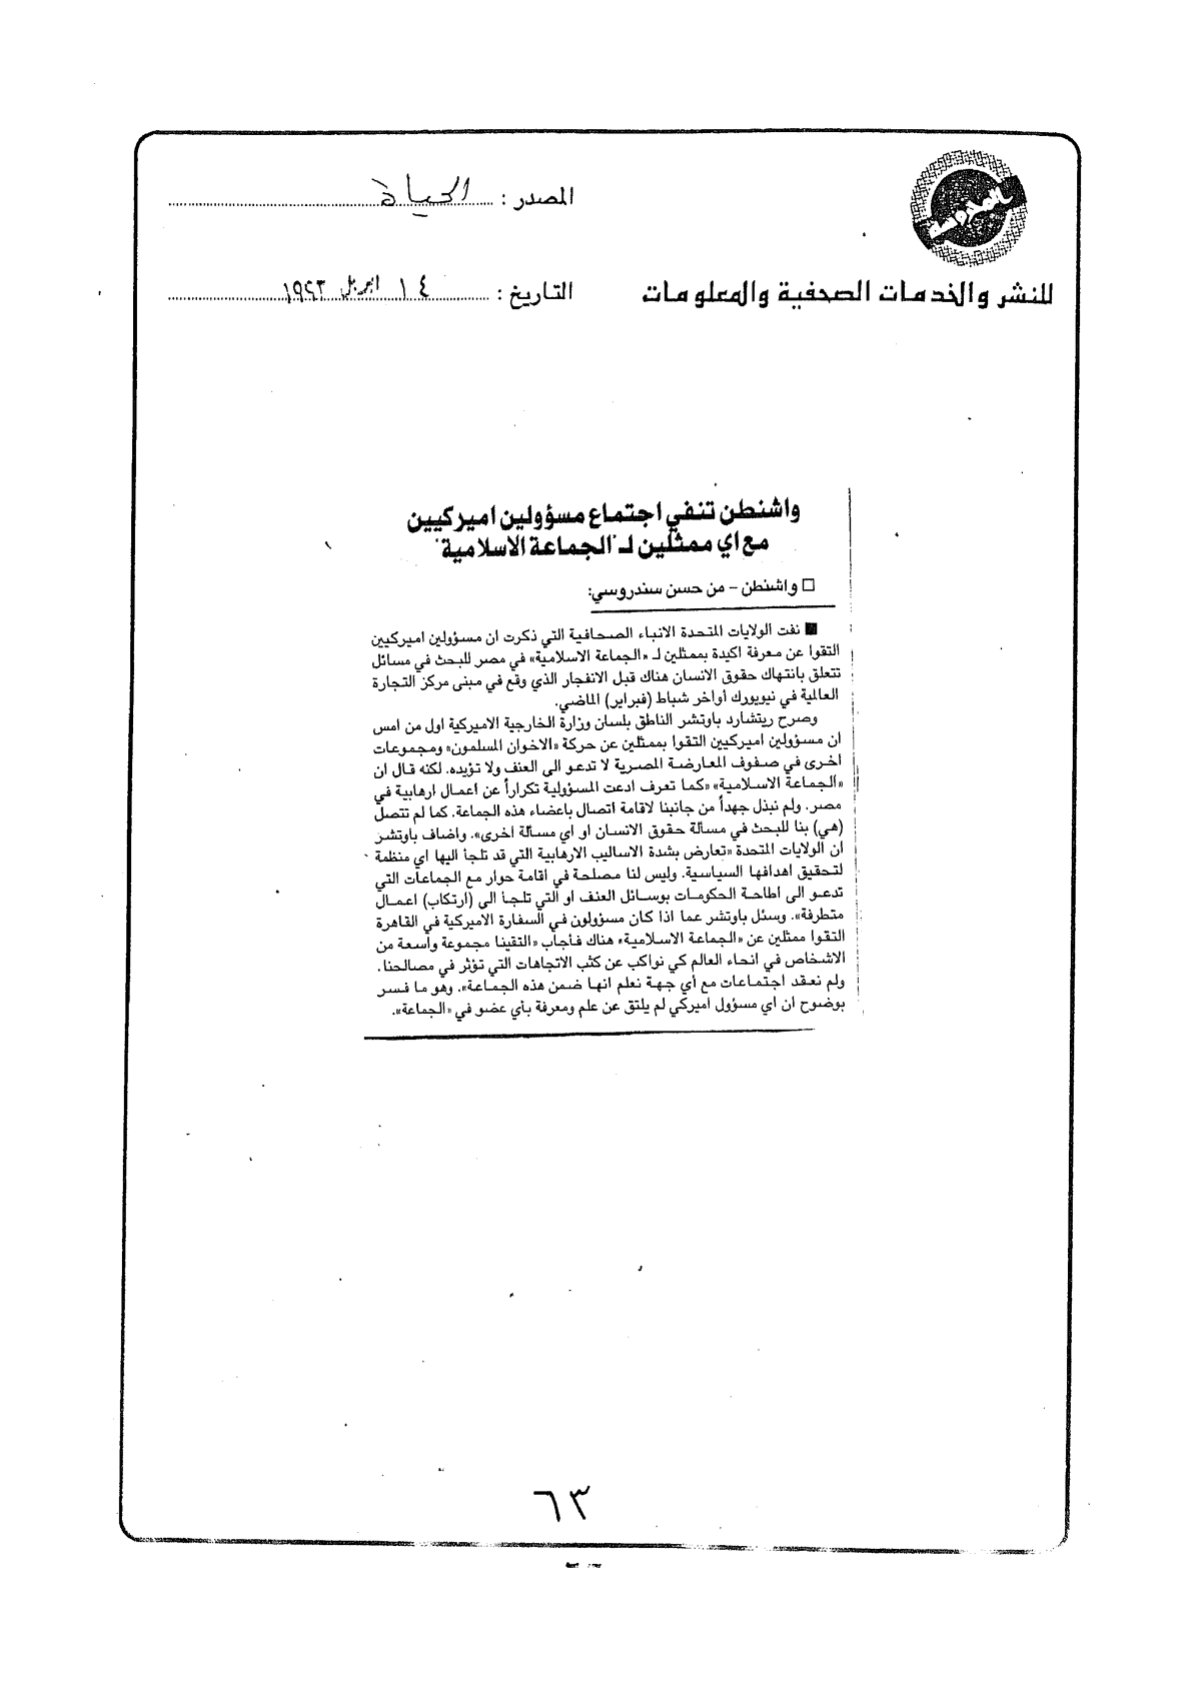 المصدر : الحياة
للنشر والخدمات الصحفية والمعلومات
التاريخ : ١٤ ابريل ١٩٩٣
واشنطن تنفي اجتماع مسؤولين اميركيين
مع اي ممثلين لـ "الجماعة الاسلامية"
□ واشنطن – من حسن سندروسي:
■ نفت الولايات المتحدة الانباء الصحافية التي ذكرت ان مسؤولين اميركيين
التقوا عن معرفة اكيدة بممثلين لـ «الجماعة الاسلامية» في مصر للبحث في مسائل
تتعلق بانتهاك حقوق الانسان هناك قبل الانفجار الذي وقع في مبنى مركز التجارة
العالمية في نيويورك أواخر شباط (فبراير) الماضي.
وصرح ريتشارد باوتشر الناطق بلسان وزارة الخارجية الاميركية اول من امس
ان مسؤولين اميركيين التقوا بممثلين عن حركة «الاخوان المسلمون» ومجموعات
اخرى في صفوف المعارضة المصرية لا تدعو الى العنف ولا تؤيده. لكنه قال ان
«الجماعة الاسلامية» «كما تعرف ادعت المسؤولية تكراراً عن اعمال ارهابية في
مصر. ولم نبذل جهداً من جانبنا لاقامة اتصال باعضاء هذه الجماعة. كما لم تتصل
(هي) بنا للبحث في مسألة حقوق الانسان او اي مسألة اخرى». واضاف باوتشر
ان الولايات المتحدة «تعارض بشدة الاساليب الارهابية التي قد تلجأ اليها اي منظمة
لتحقيق اهدافها السياسية. وليس لنا مصلحة في اقامة حوار مع الجماعات التي
تدعو الى اطاحة الحكومات بوسائل العنف او التي تلجأ الى (ارتكاب) اعمال
متطرفة». وسئل باوتشر عما اذا كان مسؤولون في السفارة الاميركية في القاهرة
التقوا ممثلين عن «الجماعة الاسلامية» هناك فأجاب «التقينا مجموعة واسعة من
الاشخاص في انحاء العالم كي نواكب عن كثب الاتجاهات التي تؤثر في مصالحنا.
ولم نعقد اجتماعات مع أي جهة نعلم انها ضمن هذه الجماعة». وهو ما فسر
بوضوح ان أي مسؤول اميركي لم يلتق عن علم ومعرفة بأي عضو في «الجماعة».
٦٣